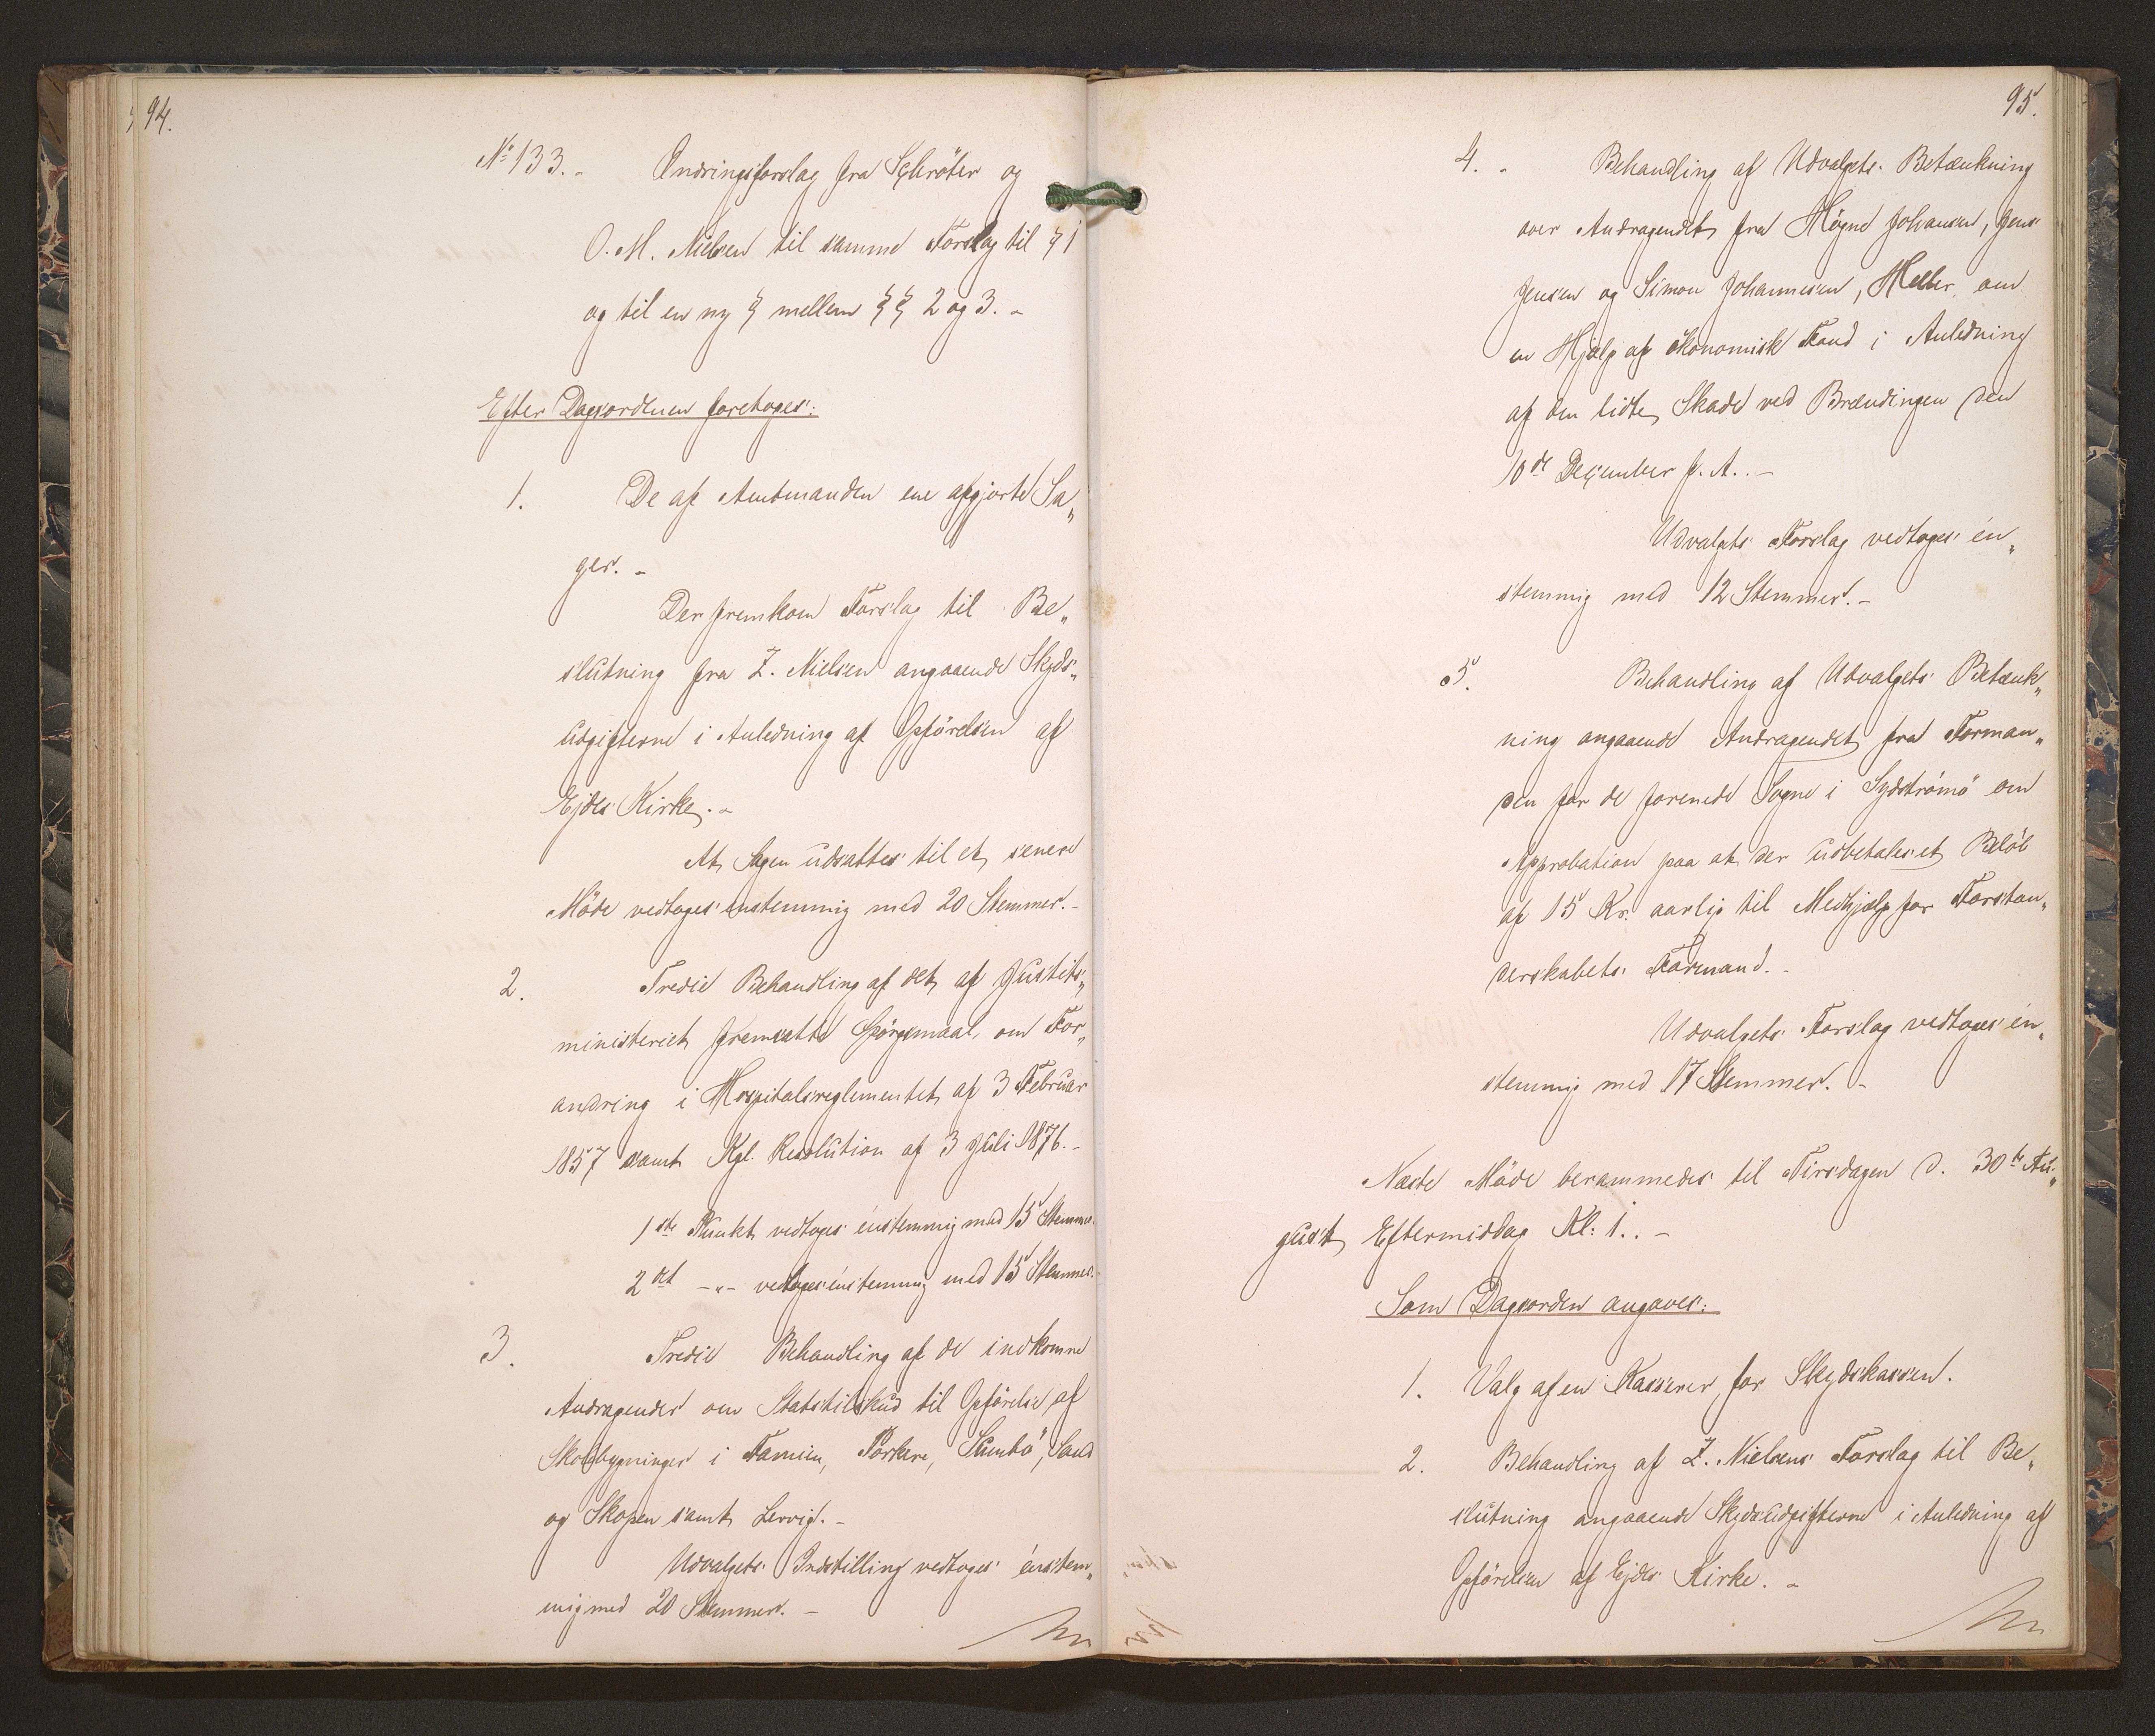 94.
№ 133. - Ændringsforslag fra Schröter og
O. M. Nielsen til samme Forslag til § 1
og til en ny § mellem §§ 2 og 3. -
Efter Dagsordenen foretoges:
1. De af Amtmanden ene afgjorte Sa„
ger. -
Der fremkom Forslag til Be„
slutning fra Z. Nielsen angaaende Skyds„
udgifterne i Anledning af Opförelsen af
Ejdes Kirke. -
At Sagen udsattes til et senere
Möde vedtoges enstemmig med 20 Stemmer. -
2. Tredie Behandling af det af Justits„
ministeriet fremsatte Spörgsmaal om For„
andring i Hospitalsreglementet af 3 Februar
1857 samt Kgl. Resolution af 3 Juli 1876. -
1ste Punkt vedtoges énstemmig med 15 Stemmer.
2det -„- vedtoges énstemmig med 15 Stemmer.
3. Tredie Behandling af de indkomne
Andragender om Statstilskud til Opförelse af
Skolebygninger i Famien, Porkere, Sumbö, Sand
og Skopen samt Lervig. -
Udvalgets Indstilling vedtoges énstem„
mig med 20 Stemmer. -
95.
4. - Behandling af Udvalgets Betænkning
over Andragendet fra Högne Johansen, Jens
Jensen og Simon Johannesen, Hellur, om
en Hjælp af ökonomisk Fond i Anledning
af den lidte Skade ved Brændingen den
10de December f. A.. -
Udvalgets Forslag vedtoges én„
stemmig med 12 Stemmer. -
5. Behandling af Udvalgets Betænk„
ning angaaende Andragendet fra Forman„
den for de forenede Sogne i Sydströmö om
Approbation paa at der udbetales et Belöb
af 15 Kr. aarlig til Medhjælp for Forstan„
derskabets Formand. -
Udvalgets Forslag vedtoges én„
stemmig med 17 Stemmer. -
Næste Möde berammedes til Tirsdagen d. 30te Au„
gust Eftermiddag Kl: 1.. -
Som Dagsorden angaves:
1. Valg af en Kasserer for Skydskassen.
2. Behandling af Z. Nielsens Forslag til Be„
slutning angaaende Skydsudgifterne i Anledning af
Opförelsen af Ejdes Kirke. -